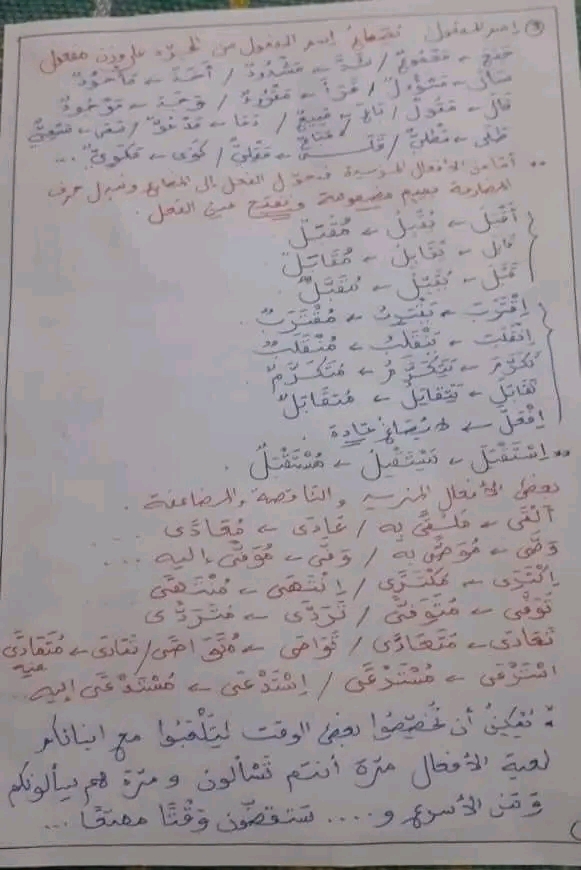 ③ اسم المفعول نصاغ إسم المفعول من المجرّد على وزن مفعول
فتح ← مفتوحٌ / شدَّ ← مشدودٌ / أخذ ← مأخوذٌ
سأل ← مسؤولٌ / قرأ ← مقروءٌ / وجد ← موجودٌ
قال ← مقولٌ / باع ← مبيعٌ / دعا ← مدعوٌّ /
طلى ← مطليٌّ / ← مقليٌّ / كوى ← مكويٌّ ...
** أمّا من الأفعال المزيدة فنحوّل الفعل إلى المضارع ونبدل حرف
المضارعة بميم مضمومة ونفتح عين الفعل.
أَقْبَلَ ← يُقْبِلُ ← مُقْبَلٌ
قابل ← يُقَابِلُ ← مُقَابَلٌ
قَبَّلَ ← يُقَبِّلُ ← مُقَبَّلٌ
اِقْتَرَبَ ← يَقْتَرِبُ ← مُقْتَرَبٌ
اِنْقَلَبَ ← يَنْقَلِبُ ← مُنْقَلَبٌ
تَكَرَّمَ ← يَتَكَرَّمُ ← مُتَكَرَّمٌ
تَقَابَلَ ← يَتَقَابَلُ ← مُتَقَابَلٌ
اِفْعَلَّ ← لا يُصَاغُ عَادة.
** اِسْتَقْبَلَ ← يَسْتَقْبِلُ ← مُسْتَقْبَلٌ.
بعض الأفعال المزيدة والناقصة والمضاعفة.
أَلْقَى ← مُلْقًى به / عَادَى ← مُعَادًى
وَصَّى ← مُوَصًّى به / وَفَّى ← مُوَفًّى إليه ...
اِكْتَرَى ← مُكْتَرًى / اِنْتَهَى ← مُنْتَهًى
تَوَفَّى ← مُتَوَفًّى / تَرَدَّى ← مُتَرَدًّى
تَعَادَى ← مُتَعَادًى / تَوَاصَى ← مُتَوَاصًى / تَفَادَى ← مُتَفَادًى
اِسْتَرْعَى ← مُسْتَرْعًى / اِسْتَدْعَى ← مُسْتَدْعًى إليه...
* يُمْكِنُ أن تُخَصِّصُوا بعض الوقت لِتَلْعَبُوا مع ابنائكم
لعبة الأفعال مرّة أنتم تَسْألون ومرّة هم يسألونكم
وَمَنِ الأسرع و.... ستقضّون وَقْتًا ممتعًا ...